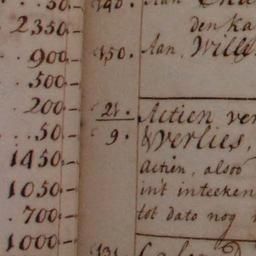 50.-
2350.-
900.-
500.-
200.-
50.-
1450.-
1050.-
700.-
1000.-
140. Aan
den Ka
150. Aan Wille
21. Actien ver
9. Verlies,
Actien, alsoo
in't inteeken
tot dato nog